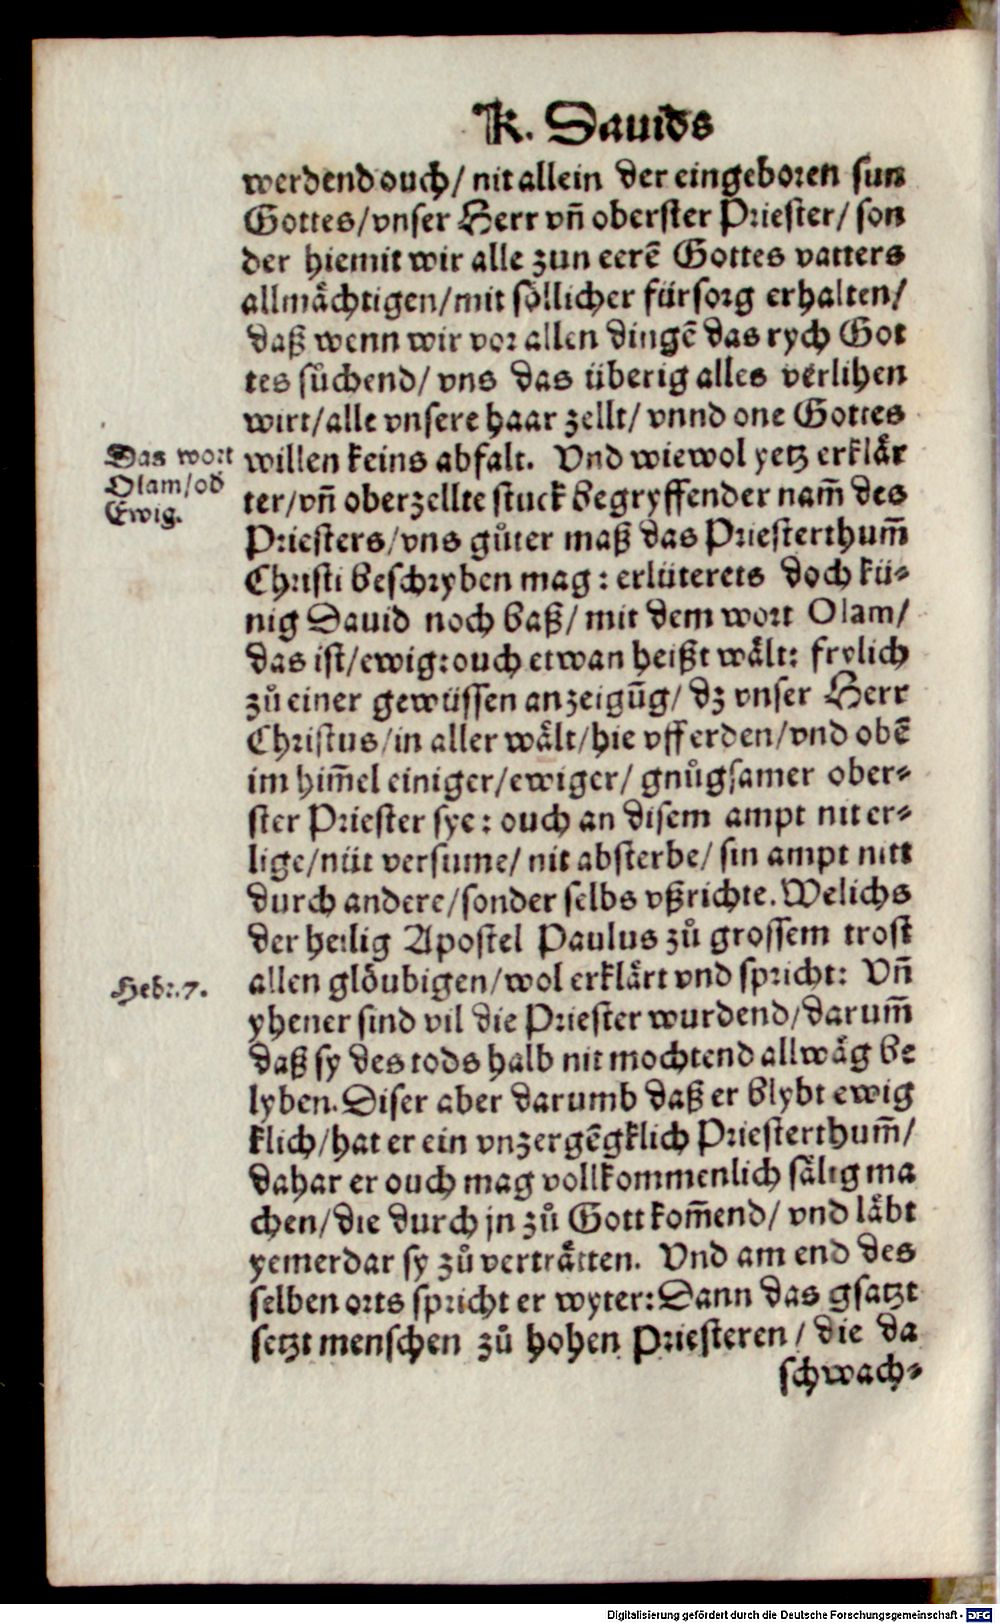 K. Dauids
werdend ouch/ nit allein der eingeboren sun
Gottes/vnser Herr vñ oberster Priester/ son
der hiemit wir alle zun eerē Gottes vatters
allmächtigen/mit söllicher fürsorg erhalten/
daß wenn wir vor allen dingē das rych Got
tes sůchend/ vns das überig alles verlihen
wirt/alle vnsere haar zellt/ vnnd one Gottes
willen keins abfalt. Vnd wiewol yetz erklär
ter/vñ oberzellte stuck begryffender nam̄ des
Priesters/vns gůter maß das Priesterthum̄
Christi beschryben mag: erlüterets doch kü-
nig Dauid noch baß/ mit dem wort Olam/
das ist/ewig:ouch etwan heißt wält: frylich
zů einer gewüssen anzeigūg/ dz vnser Herr
Christus/in aller wält/hie vff erden/vnd obē
im him̄el einiger/ewiger/ gnůgsamer ober-
ster Priester sye: ouch an disem ampt nit er-
lige/nüt versume/ nit absterbe/ sin ampt nitt
durch andere/sonder selbs vßrichte. Welichs
der heilig Apostel Paulus zů grossem trost
allen glöubigen/wol erklärt vnd spricht: Vñ
yhener sind vil die Priester wurdend/darum̄
daß sy des tods halb nit mochtend allwäg be
lyben. Diser aber darumb daß er blybt ewig
klich/hat er ein vnzergēgklich Priesterthum̄/
dahar er ouch mag vollkommenlich sälig ma
chen/die durch jn zů Gott kom̄end/ vnd läbt
yemerdar sy zů verträtten. Vnd am end des
selben orts spricht er wyter: Dann das gsatzt
setzt menschen zů hohen Priesteren/ die da
schwach-
Das wort
Olam/od
Ewig.
Hebr.7.
Digitalisierung gefördert durch die Deutsche Forschungsgemeinschaft - DFG